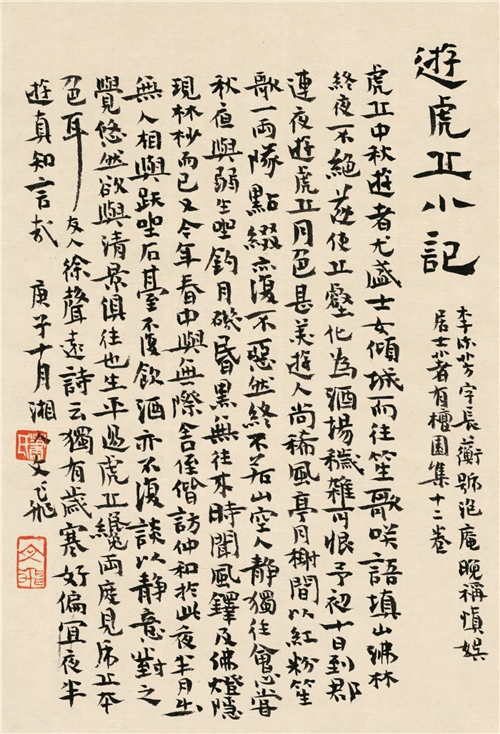 遊虎丘小記
李流芳字長蘅號泡庵晚稱慎娛
居士著有檀園集十二卷
虎丘中秋遊者尤盛士女傾城而往笙歌咲語填山沸林
終夜不絕遂使丘壑化為酒場穢雜可恨予初十日到郡
連夜遊虎丘月色甚美遊人尚稀風亭月榭間以紅粉笙
歌一兩隊點綴亦復不惡然終不若山空人靜獨往會心嘗
秋夜與弱生坐釣月磯昏黑無往來時聞風鐸及佛燈隱
現林杪而已又今年春中與無際舍侄偕訪仲和於此夜半月出
無人相與趺坐石臺不復飲酒亦不復談以靜意對之
覺悠然欲與清景俱往也生平過虎丘纔兩度見虎丘本
色耳友人徐聲遠詩云獨有歲寒好偏宜夜半
遊真知言哉 庚子十月湘人文飛
文飛